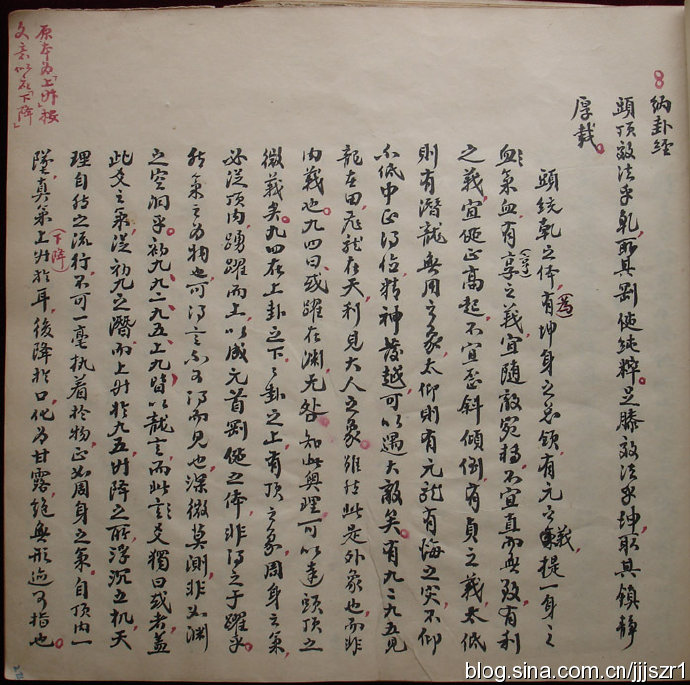 納卦經
頭頂效法乎乾取其剛健純粹足膝效法乎坤取其鎮靜
厚載
頭統乾之体有坤身之名領有元之義提一身之
血氣血有享之義宜隨敵宛轉不宜直而無致有利
之義宜健正高起不宜歪斜傾倒有貞之義太低
則有潛龍無用之象太仰則有亢龍有悔之灾不仰
不低中正得位精神發越可以遇大敵矣有九二九五見
龍在田飛龍在天利見大人之象雖然此是外象也而非
內義也九四曰或躍在渊无咎知此奥理可以達頭頂之
微義矣九四在上卦之下下卦之上有頂之象周身之氣
必從頂內踴躍而上以成元首剛健之体非得之于躍乎
然氣之為物也可得言不可得而見也深微莫測非如渊
之空洞乎初九九二九五上九皆以龍言而此爻獨曰或者蓋
此爻之氣從初九之潛而上升於九五升降之所浮沉之机天
理自然之流行不可一毫执着於物正如周身之氣自頂內一
墜真氣上升於耳後降於口化為甘露絕無形迹可指也
(為)
(亨)
(下降)
原本為「上升」按
文意似應「下降」
blog.sina.com.cn/jjjszr1